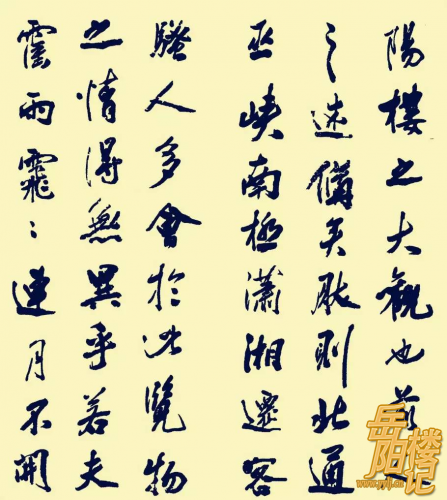 陽樓之大觀也前
之述備矣然則北通
巫峽南極瀟湘遷客
騷人多會於此覽物
之情得無異乎若夫
霪雨霏々連月不開
岳阳楼记